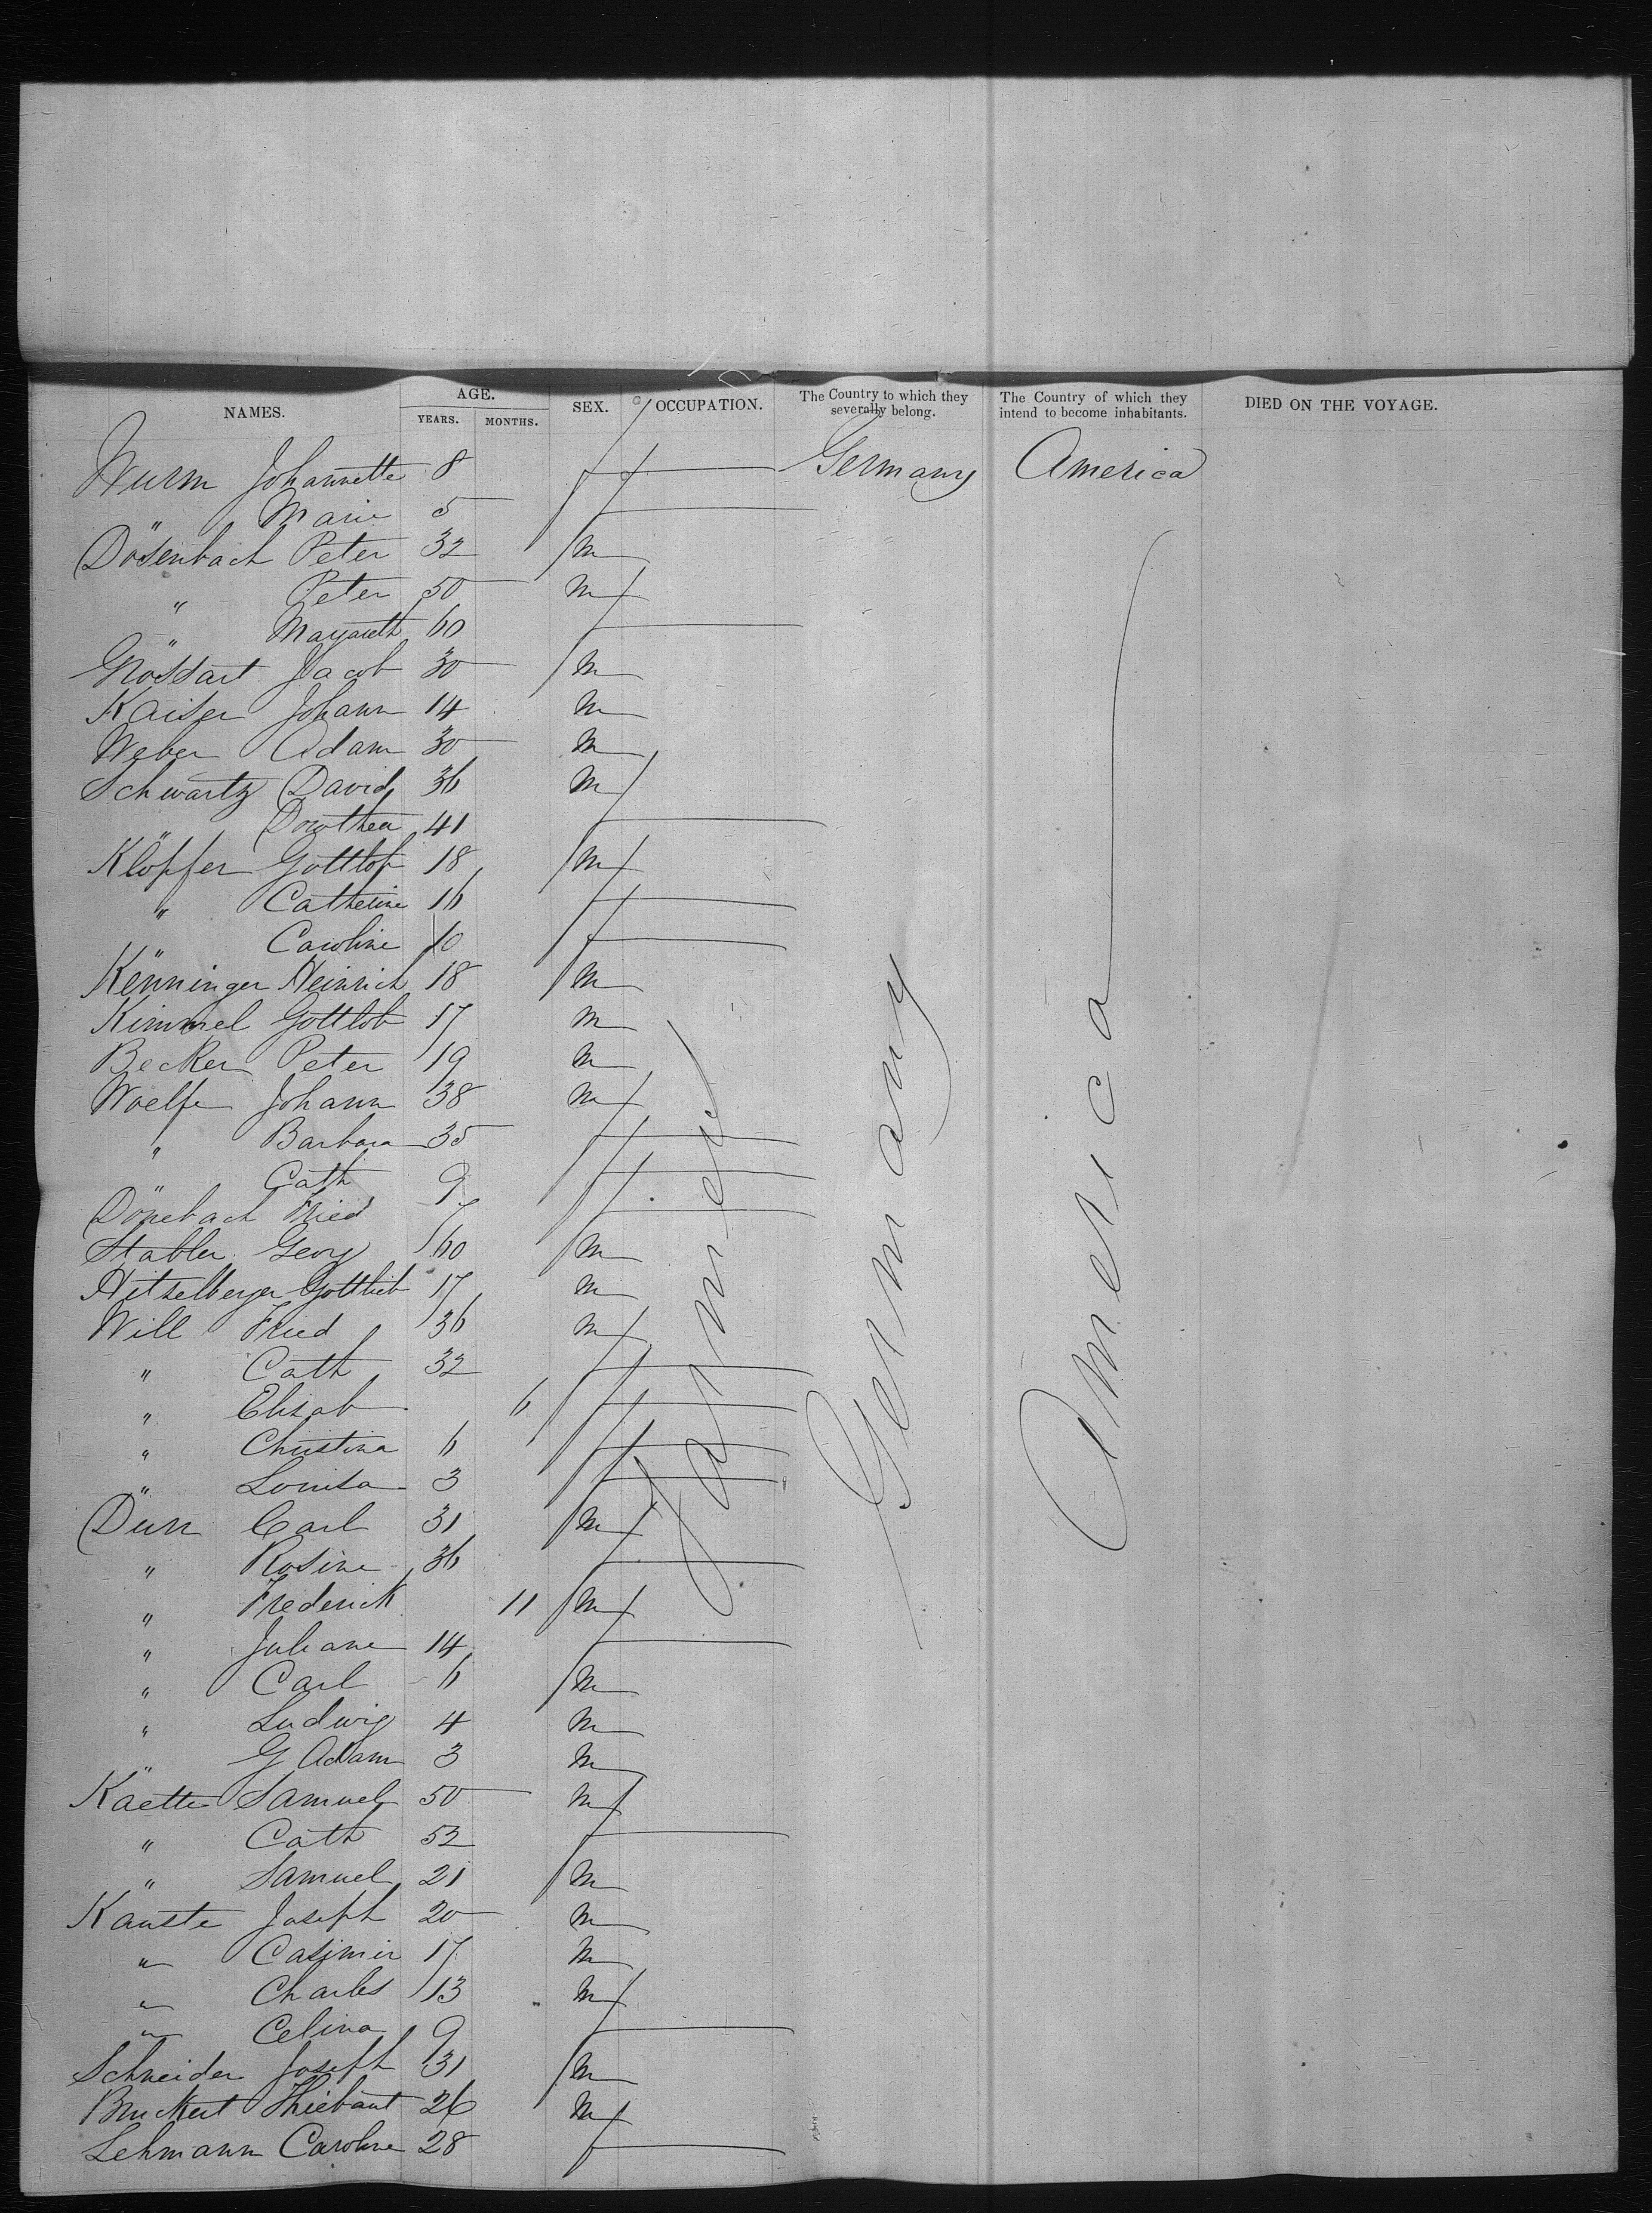 NAMES. AGE. YEARS. MONTHS. SEX. OCCUPATION. The Country to which they severally belong. The Country of which they intend to become inhabitants. DIED ON THE VOYAGE.
Wurm Johannette 8 f Germany America
" Marie 5 f
Dosenbach Peter 32 m
" Peter 50 m
" Margareth 60 f
Jacob 30 m
Kaiser Johann 14 m
Weber Adam 30 m
Schwartz David 36 m
" Dorothea 41 f
Klöpfer Gottlob 18 m
" Catherine 16 f
" Caroline 10 f
Kenninger Heinrich 18 m
Kimmel Gottlob 17 m
Becker Peter 19 m
Woelfe Johann 38 m
" Barbara 35 f
" Cath 9 f
Fried f
Stabler Georg 60 m
Hitzelberger Gottlieb 17 m
Will Fried 36 m
" Cath 32 f
" Elisab 6 f
" Christina 6 f
" Louisa 3 f
Durr Carl 31 m
" Rosine 36 f
" Frederick 11 m
" Juliane 14 f
" Carl 6 m
" Ludwig 4 m
" G Adam 3 m
Kaette Samuel 50 m
" Cath 52 f
" Samuel 21 m
Kauste Joseph 20 m
" Casimir 17 m
" Charles 13 m
" Celina 9 f
Schneider Joseph 31 m
Bruckert Thiebaut 26 m
Lehmann Caroline 28 f
Farmer
Germany
America